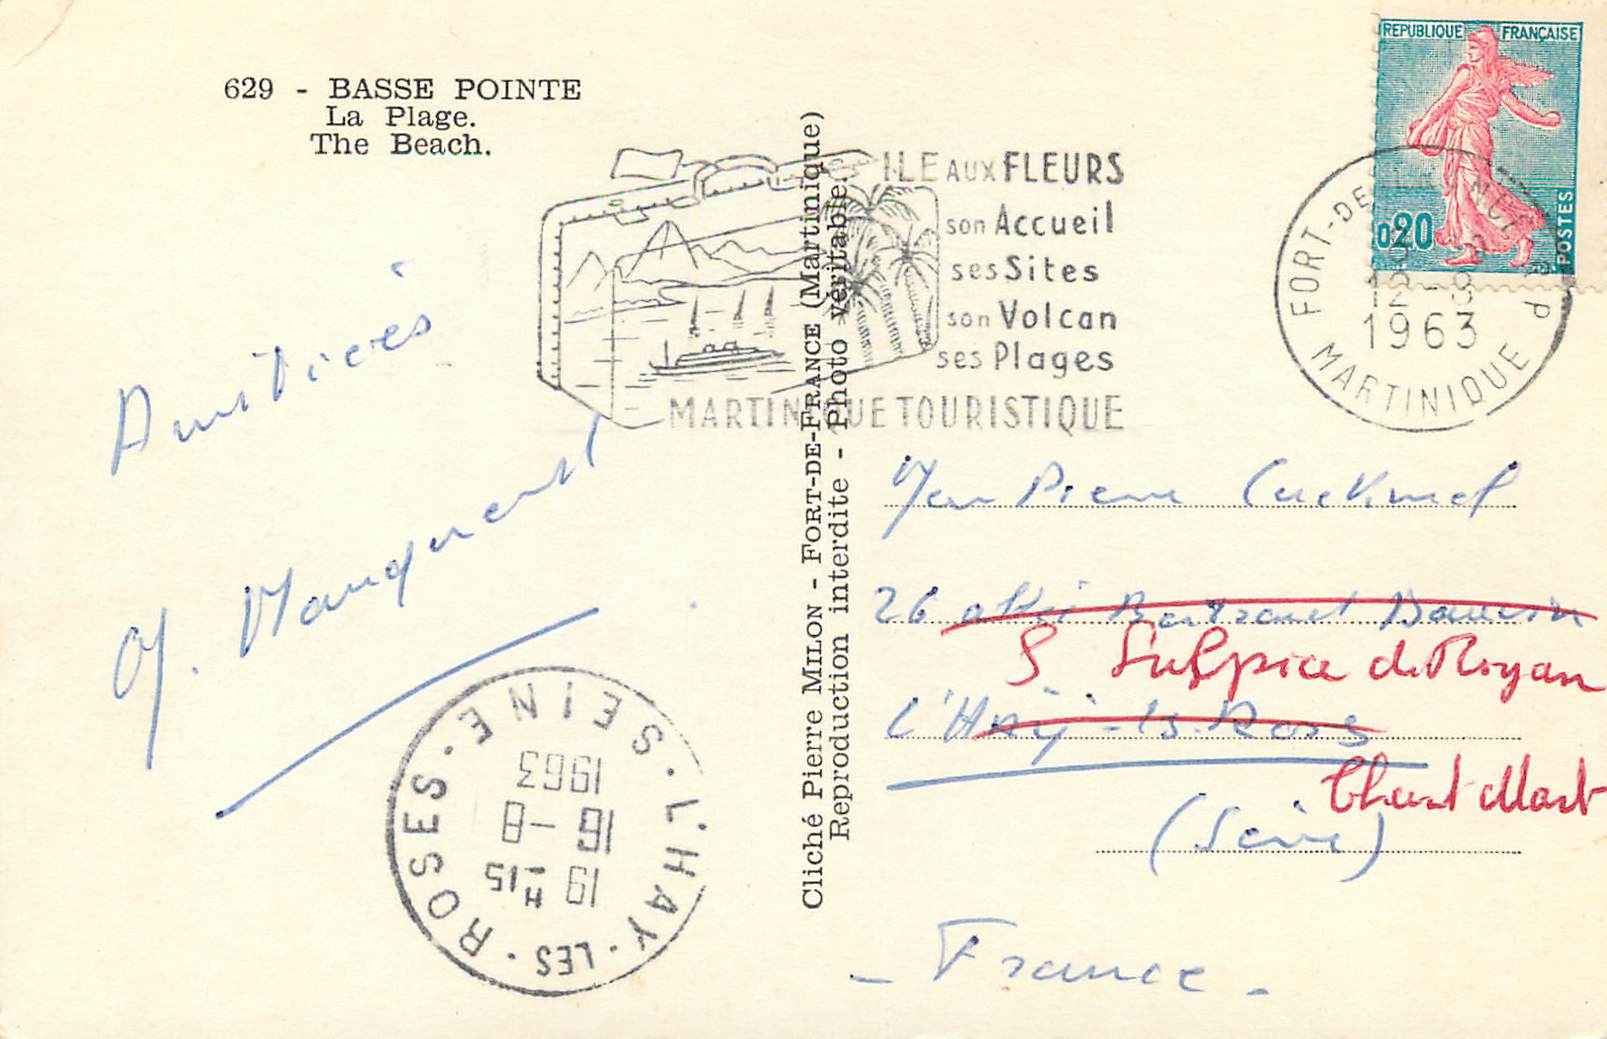 629 - BASSE POINTE
La Plage.
The Beach.
Amitiés
Cliché Pierre MILON - FORT-DE-FRANCE (Martinique)
Reproduction interdite - Photo véritable.
ILE AUX FLEURS
son Accueil
ses Sites
son Volcan
ses Plages
MARTINIQUE TOURISTIQUE
REPUBLIQUE FRANÇAISE
0,20
POSTES
FORT-DE-FRANCE R P
12-8
1963
MARTINIQUE
Jean Pierre
26 allée Bertrand
S Sulpice de Royan
L'Haÿ-ls-Roses
Charent Marit
(Seine)
- France -
L'HAY-LES-ROSES · SEINE ·
19 H 15
16-8
1963